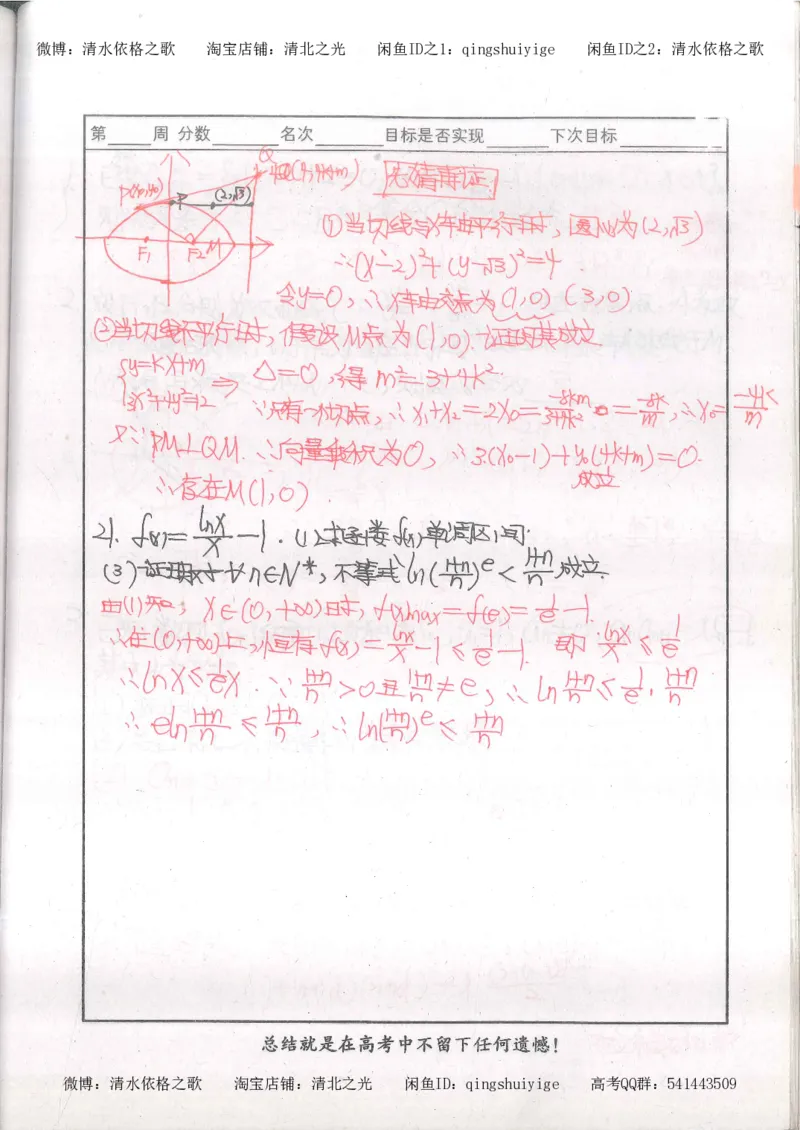 微博：清水依格之歌 淘宝店铺：清北之光 闲鱼ID之1：qingshuiyige 闲鱼ID之2：清水依格之歌
第____周 分数____ 名次____ 目标是否实现____ 下次目标____
Q
P(x₀,y₀) (4,4k+m) 先猜再证
P (2,√3) ①当切线与x轴平行时，圆心为(2,√3)
F₁ F₂ M ∴(x-2)²+(y-√3)²=4
令y=0，∴x轴交点为(1,0)(3,0)
②当切线不平行时，假设M点为(1,0)，证明其成立
{y=kx+m
{3x²+4y²=12 ⇒ △=0，得m²=3+4k²
∵只有一切点，∴x₁+x₂=2x₀=-8km/3+4k²=-8k/m，∴x₀=-4k/m
又∵PM⊥QM ∴向量乘积为0，∴3(x₀-1)+y₀(4k+m)=0
成立
∴存在M(1,0)
21. f(x)=lnx/x-1. (1)求函数f(x)单调区间；
(3)证明对∀n∈N*，不等式ln(1+n/n)^e<1+n/n成立.
由(1)知，x∈(0,+∞)时，f(x)max=f(e)=1/e-1
∴在(0,+∞)上，恒有f(x)=lnx/x-1≤1/e-1 即lnx/x≤1/e
∴lnx≤1/e x. ∵1+n/n>0且1+n/n≠e，∴ln 1+n/n≤1/e·1+n/n
∴eln 1+n/n≤1+n/n，∴ln(1+n/n)^e≤1+n/n
总结就是在高考中不留下任何遗憾！
微博：清水依格之歌 淘宝店铺：清北之光 闲鱼ID：qingshuiyige 高考QQ群：541443509